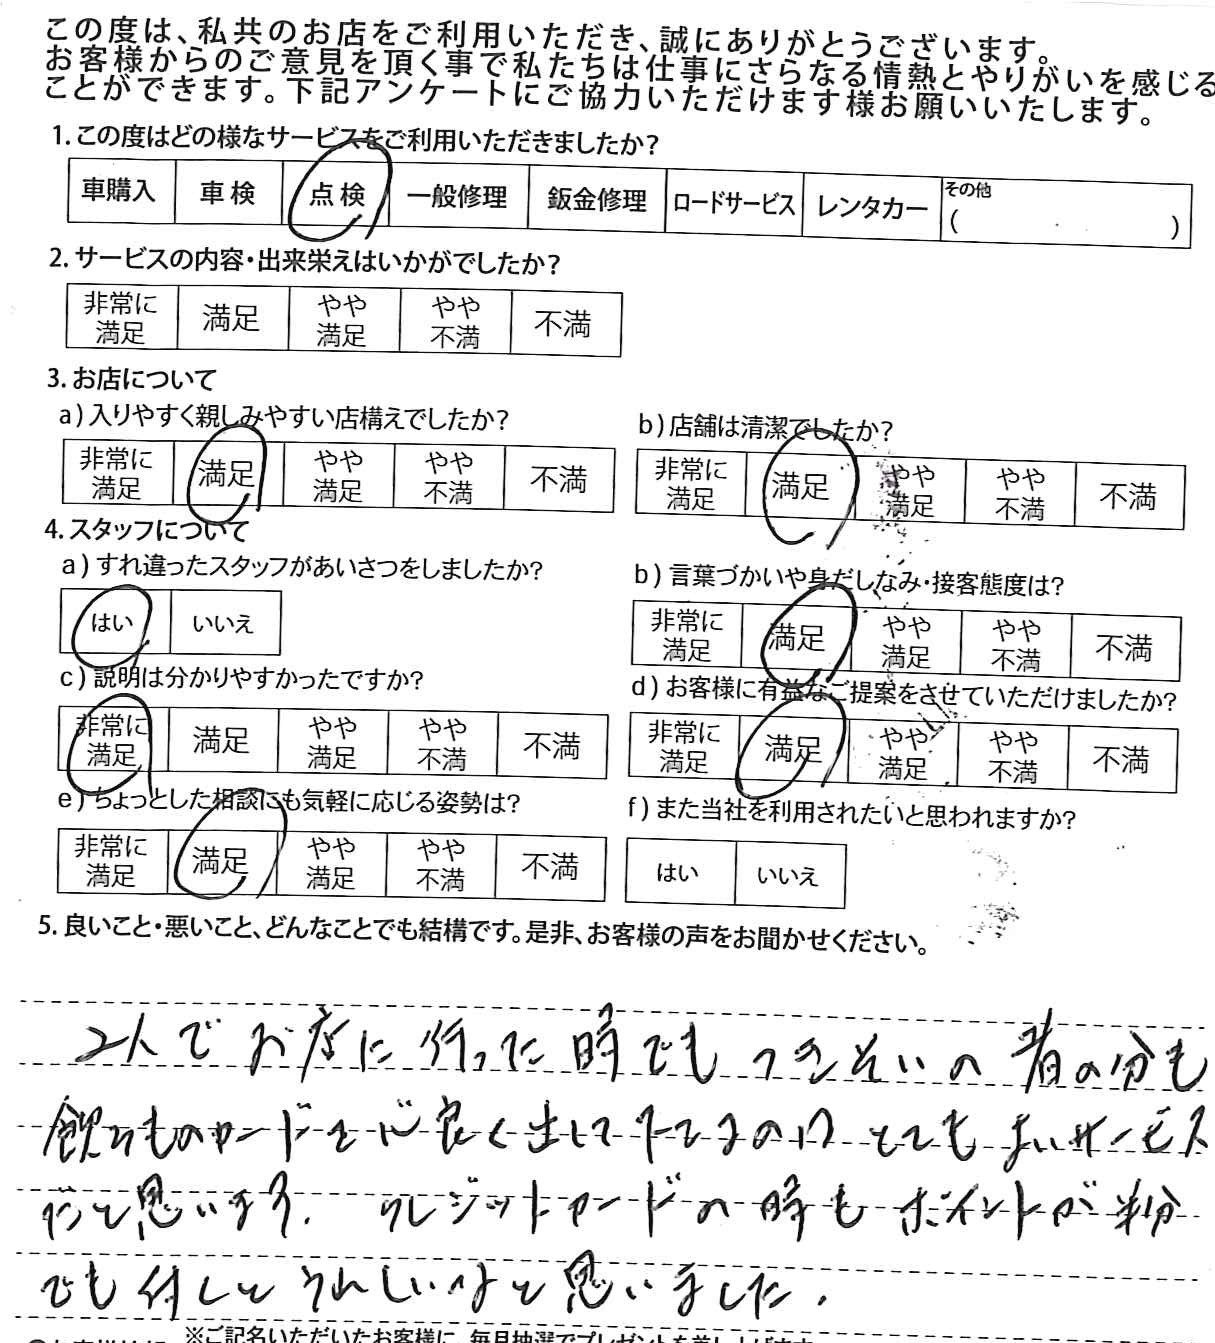 この度は、私共のお店をご利用いただき、誠にありがとうございます。
お客様からのご意見を頂く事で私たちは仕事にさらなる情熱とやりがいを感じる
ことができます。下記アンケートにご協力いただけます様お願いいたします。
1. この度はどの様なサービスをご利用いただきましたか?
車購入 車検 点検 一般修理 鈑金修理 ロードサービス レンタカー その他 ( )
2. サービスの内容・出来栄えはいかがでしたか?
非常に満足 満足 やや満足 やや不満 不満
3. お店について
a) 入りやすく親しみやすい店構えでしたか?
非常に満足 満足 やや満足 やや不満 不満
b) 店舗は清潔でしたか?
非常に満足 満足 やや満足 やや不満 不満
4. スタッフについて
a) すれ違ったスタッフがあいさつをしましたか?
はい いいえ
b) 言葉づかいや身だしなみ・接客態度は?
非常に満足 満足 やや満足 やや不満 不満
c) 説明は分かりやすかったですか?
非常に満足 満足 やや満足 やや不満 不満
d) お客様に有益なご提案をさせていただけましたか?
非常に満足 満足 やや満足 やや不満 不満
e) ちょっとした相談にも気軽に応じる姿勢は?
非常に満足 満足 やや満足 やや不満 不満
f) また当社を利用されたいと思われますか?
はい いいえ
5. 良いこと・悪いこと、どんなことでも結構です。是非、お客様の声をお聞かせください。
2人でお店に行った時でもつきそいの者の分も
飲みものカードを心良く出して下さるのはとてもよいサービス
だと思います. クレジットカードの時もポイントが半分
でも付くと うれしいなと思いました.
※ご記名いただいたお客様に、毎月抽選でプレゼントを差し上げます